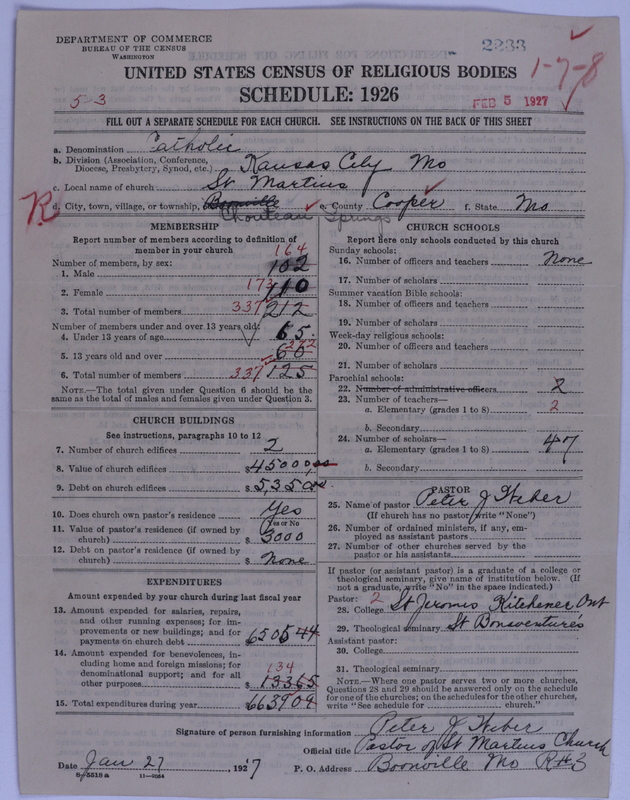 DEPARTMENT OF COMMERCE
BUREAU OF THE CENSUS
WASHINGTON
2233
UNITED STATES CENSUS OF RELIGIOUS BODIES
1-7-8
SCHEDULE: 1926
5-3
FEB 5 1927
FILL OUT A SEPARATE SCHEDULE FOR EACH CHURCH. SEE INSTRUCTIONS ON THE BACK OF THIS SHEET
a. Denomination Catholic
b. Division (Association, Conference, Diocese, Presbytery, Synod, etc.) Kansas City Mo
c. Local name of church St Martins
R
d. City, town, village, or township, Boonville e. County Cooper f. State Mo
Chouteau Springs
MEMBERSHIP
Report number of members according to definition of
member in your church
164
Number of members, by sex:
1. Male 102
2. Female 173 110
3. Total number of members 337 212
Number of members under and over 13 years old:
4. Under 13 years of age 65
5. 13 years old and over 60 272
6. Total number of members 337 125
NOTE.—The total given under Question 6 should be
same as the total of males and females given under Question 3.
CHURCH BUILDINGS
See instructions, paragraphs 10 to 12
7. Number of church edifices 2
8. Value of church edifices $45000,00
9. Debt on church edifices $5,35000
10. Does church own pastor's residence Yes
Yes or No
11. Value of pastor's residence (if owned by
church) $3000
12. Debt on pastor's residence (if owned by
church) $None
EXPENDITURES
Amount expended by your church during last fiscal year
13. Amount expended for salaries, repairs,
and other running expenses; for im-
provements or new buildings; and for
payments on church debt 6505 44
14. Amount expended for benevolences, in-
cluding home and foreign missions; for
denominational support; and for all
other purposes $13365
134
15. Total expenditures during year 6639 09
CHURCH SCHOOLS
Report here only schools conducted by this church
Sunday schools:
16. Number of officers and teachers None
17. Number of scholars
Summer vacation Bible schools:
18. Number of officers and teachers
19. Number of scholars
Week-day religious schools:
20. Number of officers and teachers
21. Number of scholars
Parochial schools:
22. Number of administrative officers 2
23. Number of teachers—
a. Elementary (grades 1 to 8) 2
b. Secondary
24. Number of scholars—
a. Elementary (grades 1 to 8) 47
b. Secondary
PASTOR
25. Name of pastor Peter J Weber
(If church has no pastor, write "None")
26. Number of ordained ministers, if any, em-
ployed as assistant pastors
27. Number of other churches served by the
pastor or his assistants
If pastor (or assistant pastor) is a graduate of a college or
theological seminary, give name of institution below. (If
not a graduate, write "No" in the space indicated.)
Pastor: 2
28. College St Jeroms Kitchener Ont
29. Theological seminary St Bonaventures
Assistant pastor:
30. College
31. Theological seminary
NOTE.—Where one pastor serves two or more churches,
Questions 28 and 29 should be answered only on the schedule
for one of the churches; on the schedules for the other churches,
write "See schedule for church."
Signature of person furnishing information Peter J Weber
Official title Pastor of St Martins Church
Date Jan 27, 1927 P. O. Address Boonville Mo R#3
8-5518 a 11-9064